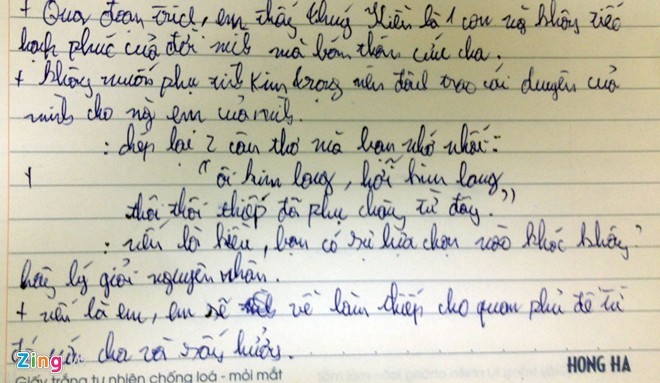 + Qua đoạn trích, em thấy thuý Kiều là 1 con ng không tiếc
hạnh phúc của đời mình mà bán thân cứu cha.
+ không muốn phụ tình Kim trọng nên đành trao cái duyên của
mình cho ng em của mình.
: chép lại 2 câu thơ mà bạn nhớ nhất:
+ "ôi kim lang, hỡi kim lang
thôi thôi thiếp đã phụ chàng từ đây."
: nếu là kiều, bạn có sự lựa chọn nào khác không?
hãy lý giải nguyên nhân.
+ nếu là em, em sẽ về làm thiếp cho quan phủ để từ
đó cha và sống hưởng.
Zing
HONG HA
Giấy trắng tự nhiên chống loá - mỏi mắt